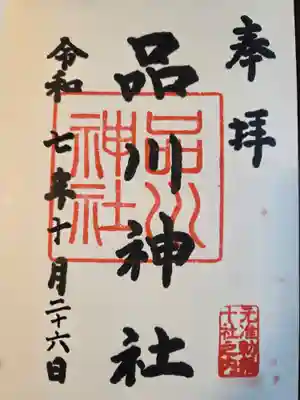 奉拝
品川神社
品川神社
令和七年十月二十六日
元准勅祭
十社之内